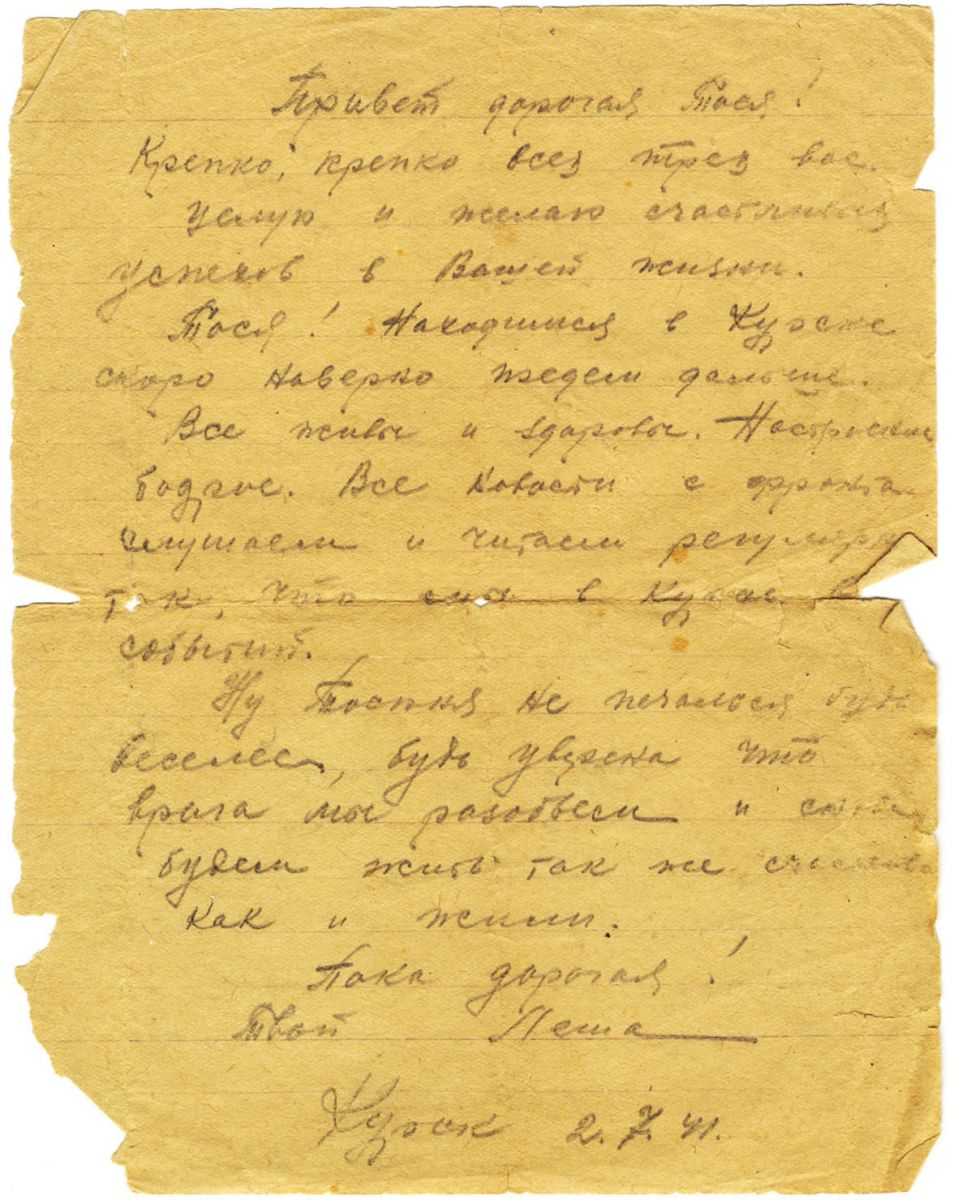 Привет дорогая Тася!
Крепко, крепко всех трех вас.
целую и желаю счастливых
успехов в Вашей жизни.
Тася! Находимся в Курске
скоро наверно поедем дальше.
Все живы и здоровы. Настроение
бодрое. Все новости с фронта
слушаем и читаем регулярно
так, что в курсе в
событий.
Ну не печалься будь
веселее, будь уверена что
врага мы разобьем и снова
будем жить так же счастливо
как и жили.
Пока дорогая!
Твой Леша
Курск 2.7.41.